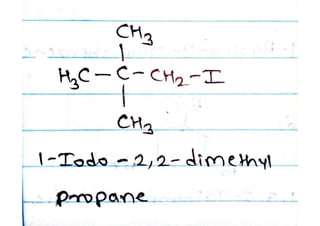 CH3
|
H3C-C-CH2-I
|
CH3
1-Iodo-2,2-dimethyl
propane